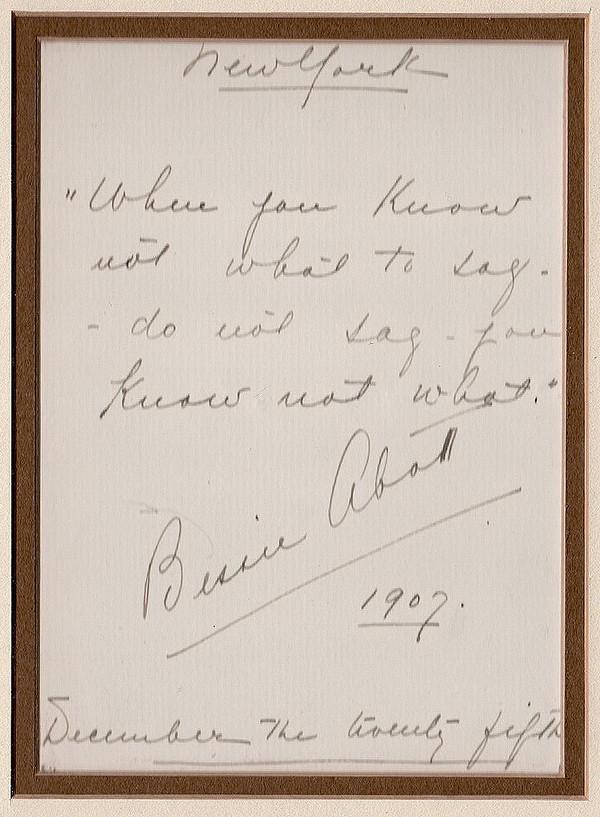 New York
"When you Know
not what to say -
- do not say - you
Know not what."
Bessie Abott
1907.
December the twenty fifth